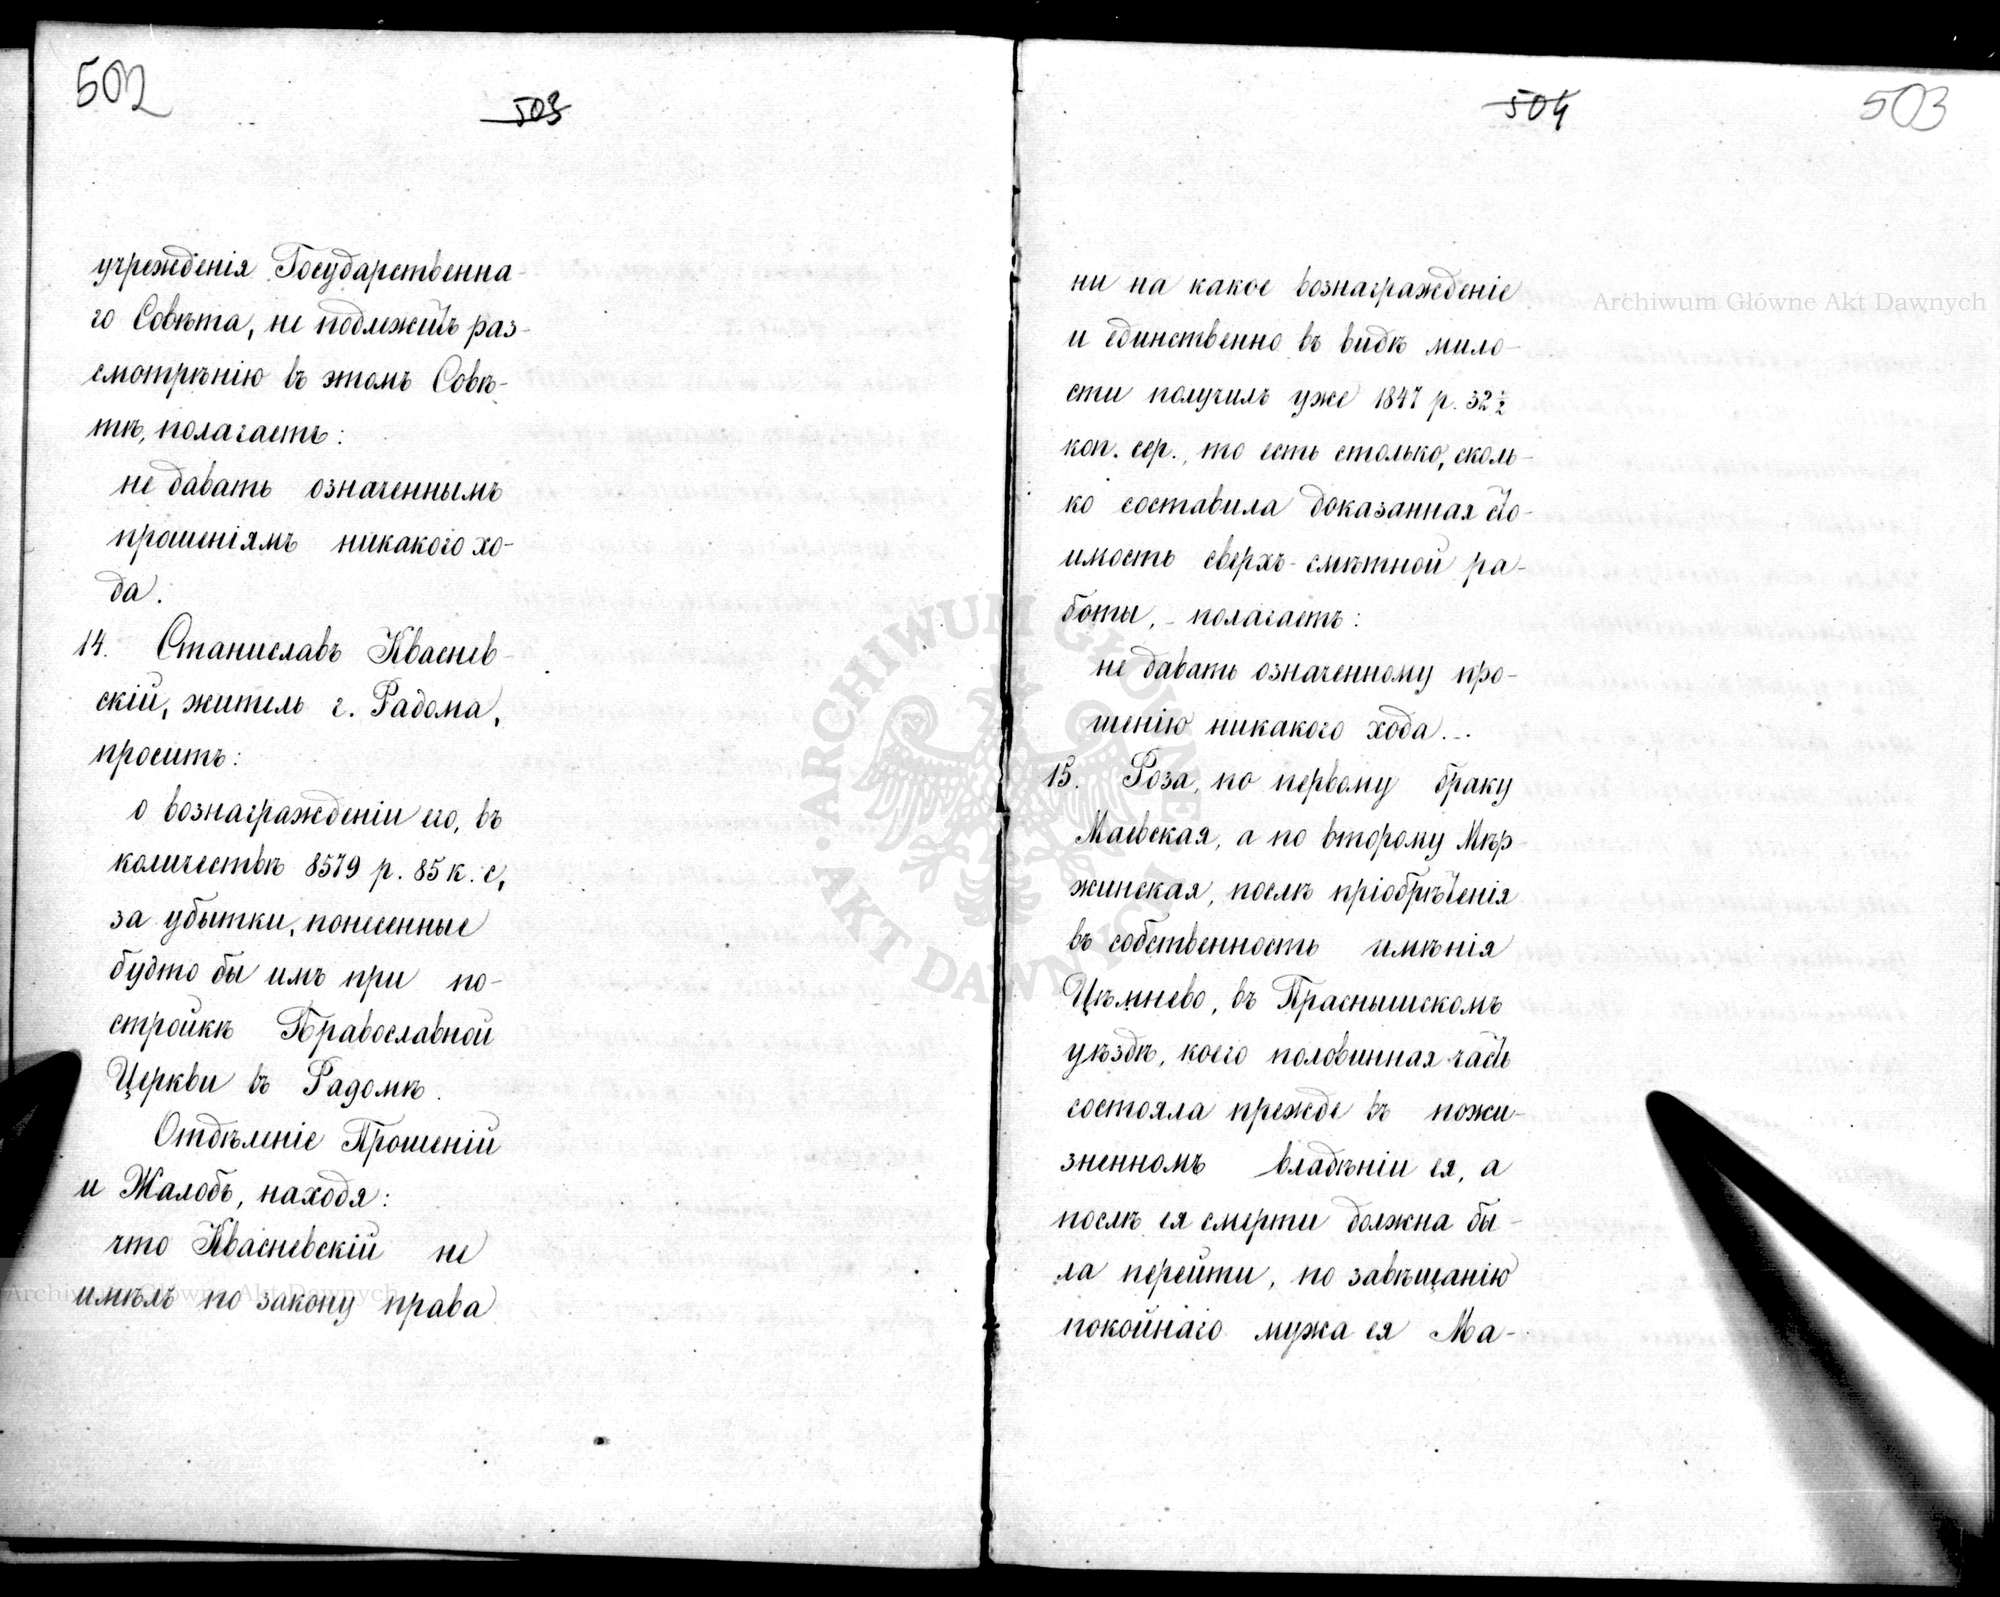 502
503
учрежденія Государственна-
го Совѣта, не подлежитъ раз-
смотрѣнію въ этомъ Совѣ-
тѣ, полагаетъ:
не давать означеннымъ
прошеніямъ никакого хо-
да.
14. Станиславъ Кваснев-
скій, житель г. Радома,
проситъ:
о вознагражденіи его, въ
количествѣ 8579 р. 85 к. с,
за убытки, понесенные
будто бы имъ при по-
стройкѣ Православной
Церкви въ Радомѣ.
Отдѣленіе Прошеній
и Жалобъ, находя:
что Квасневскій не
имѣлъ по закону права
504
503
ни на какое вознагражденіе
и единственно въ видѣ мило-
сти получилъ уже 1847 р. 32 ½
коп. сер., то есть столько, сколь-
ко составила доказанная сто-
имость сверхъ-смѣтной ра-
боты, - полагаетъ:
не давать означенному про-
шенію никакого хода.-.
15. Роза, по первому браку
Маевская, а по второму Мѣр-
жинская, послѣ пріобрѣтенія
въ собственность имѣнія
Цѣмнево, въ Праснышскомъ
уѣздѣ, коего половинная часть
состояла прежде въ пожи-
зненномъ владѣніи ея, а
послѣ ея смерти должна бы-
ла перейти, по завѣщанію
покойнаго мужа ея Ма-
Archiwum Główne Akt Dawnych
Archiwum Główne Akt Dawnych
ARCHIWUM GŁÓWNE AKT DAWNYCH